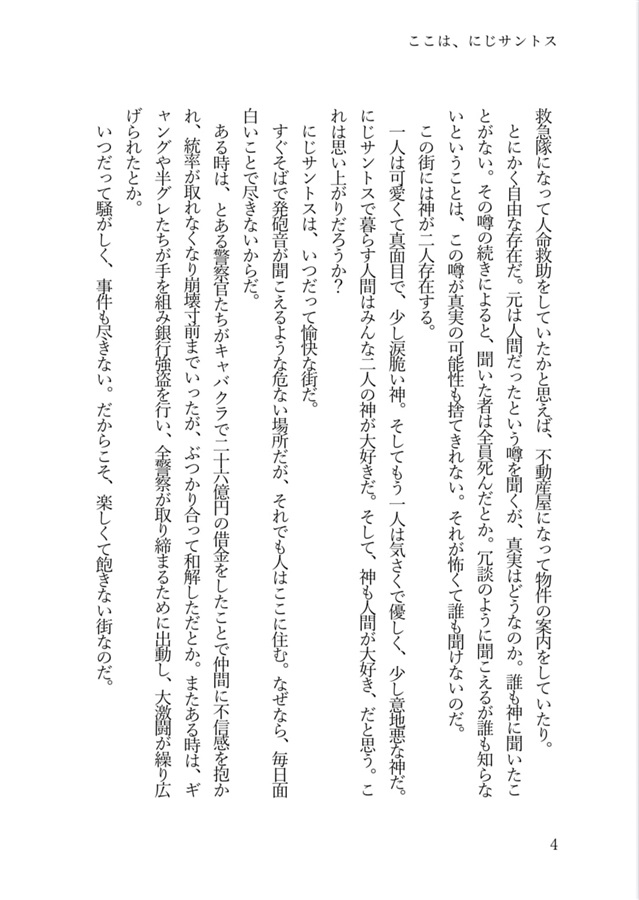 ここは、にじサントス
救急隊になって人命救助をしていたかと思えば、不動産屋になって物件の案内をしていたり。
とにかく自由な存在だ。元は人間だったという噂を聞くが、真実はどうなのか。誰も神に聞いたこ
とがない。その噂の続きによると、聞いた者は全員死んだとか。冗談のように聞こえるが誰も知らな
いということは、この噂が真実の可能性も捨てきれない。それが怖くて誰も聞けないのだ。
この街には神が二人存在する。
一人は可愛くて真面目で、少し涙脆い神。そしてもう一人は気さくで優しく、少し意地悪な神だ。
にじサントスで暮らす人間はみんな二人の神が大好きだ。そして、神も人間が大好き、だと思う。こ
れは思い上がりだろうか?
にじサントスは、いつだって愉快な街だ。
すぐそばで発砲音が聞こえるような危ない場所だが、それでも人はここに住む。なぜなら、毎日面
白いことで尽きないからだ。
ある時は、とある警察官たちがキャバクラで二十六億円の借金をしたことで仲間に不信感を抱か
れ、統率が取れなくなり崩壊寸前までいったが、ぶつかり合って和解しただとか。またある時は、ギ
ャングや半グレたちが手を組み銀行強盗を行い、全警察が取り締まるために出動し、大激闘が繰り広
げられたとか。
いつだって騒がしく、事件も尽きない。だからこそ、楽しくて飽きない街なのだ。
4